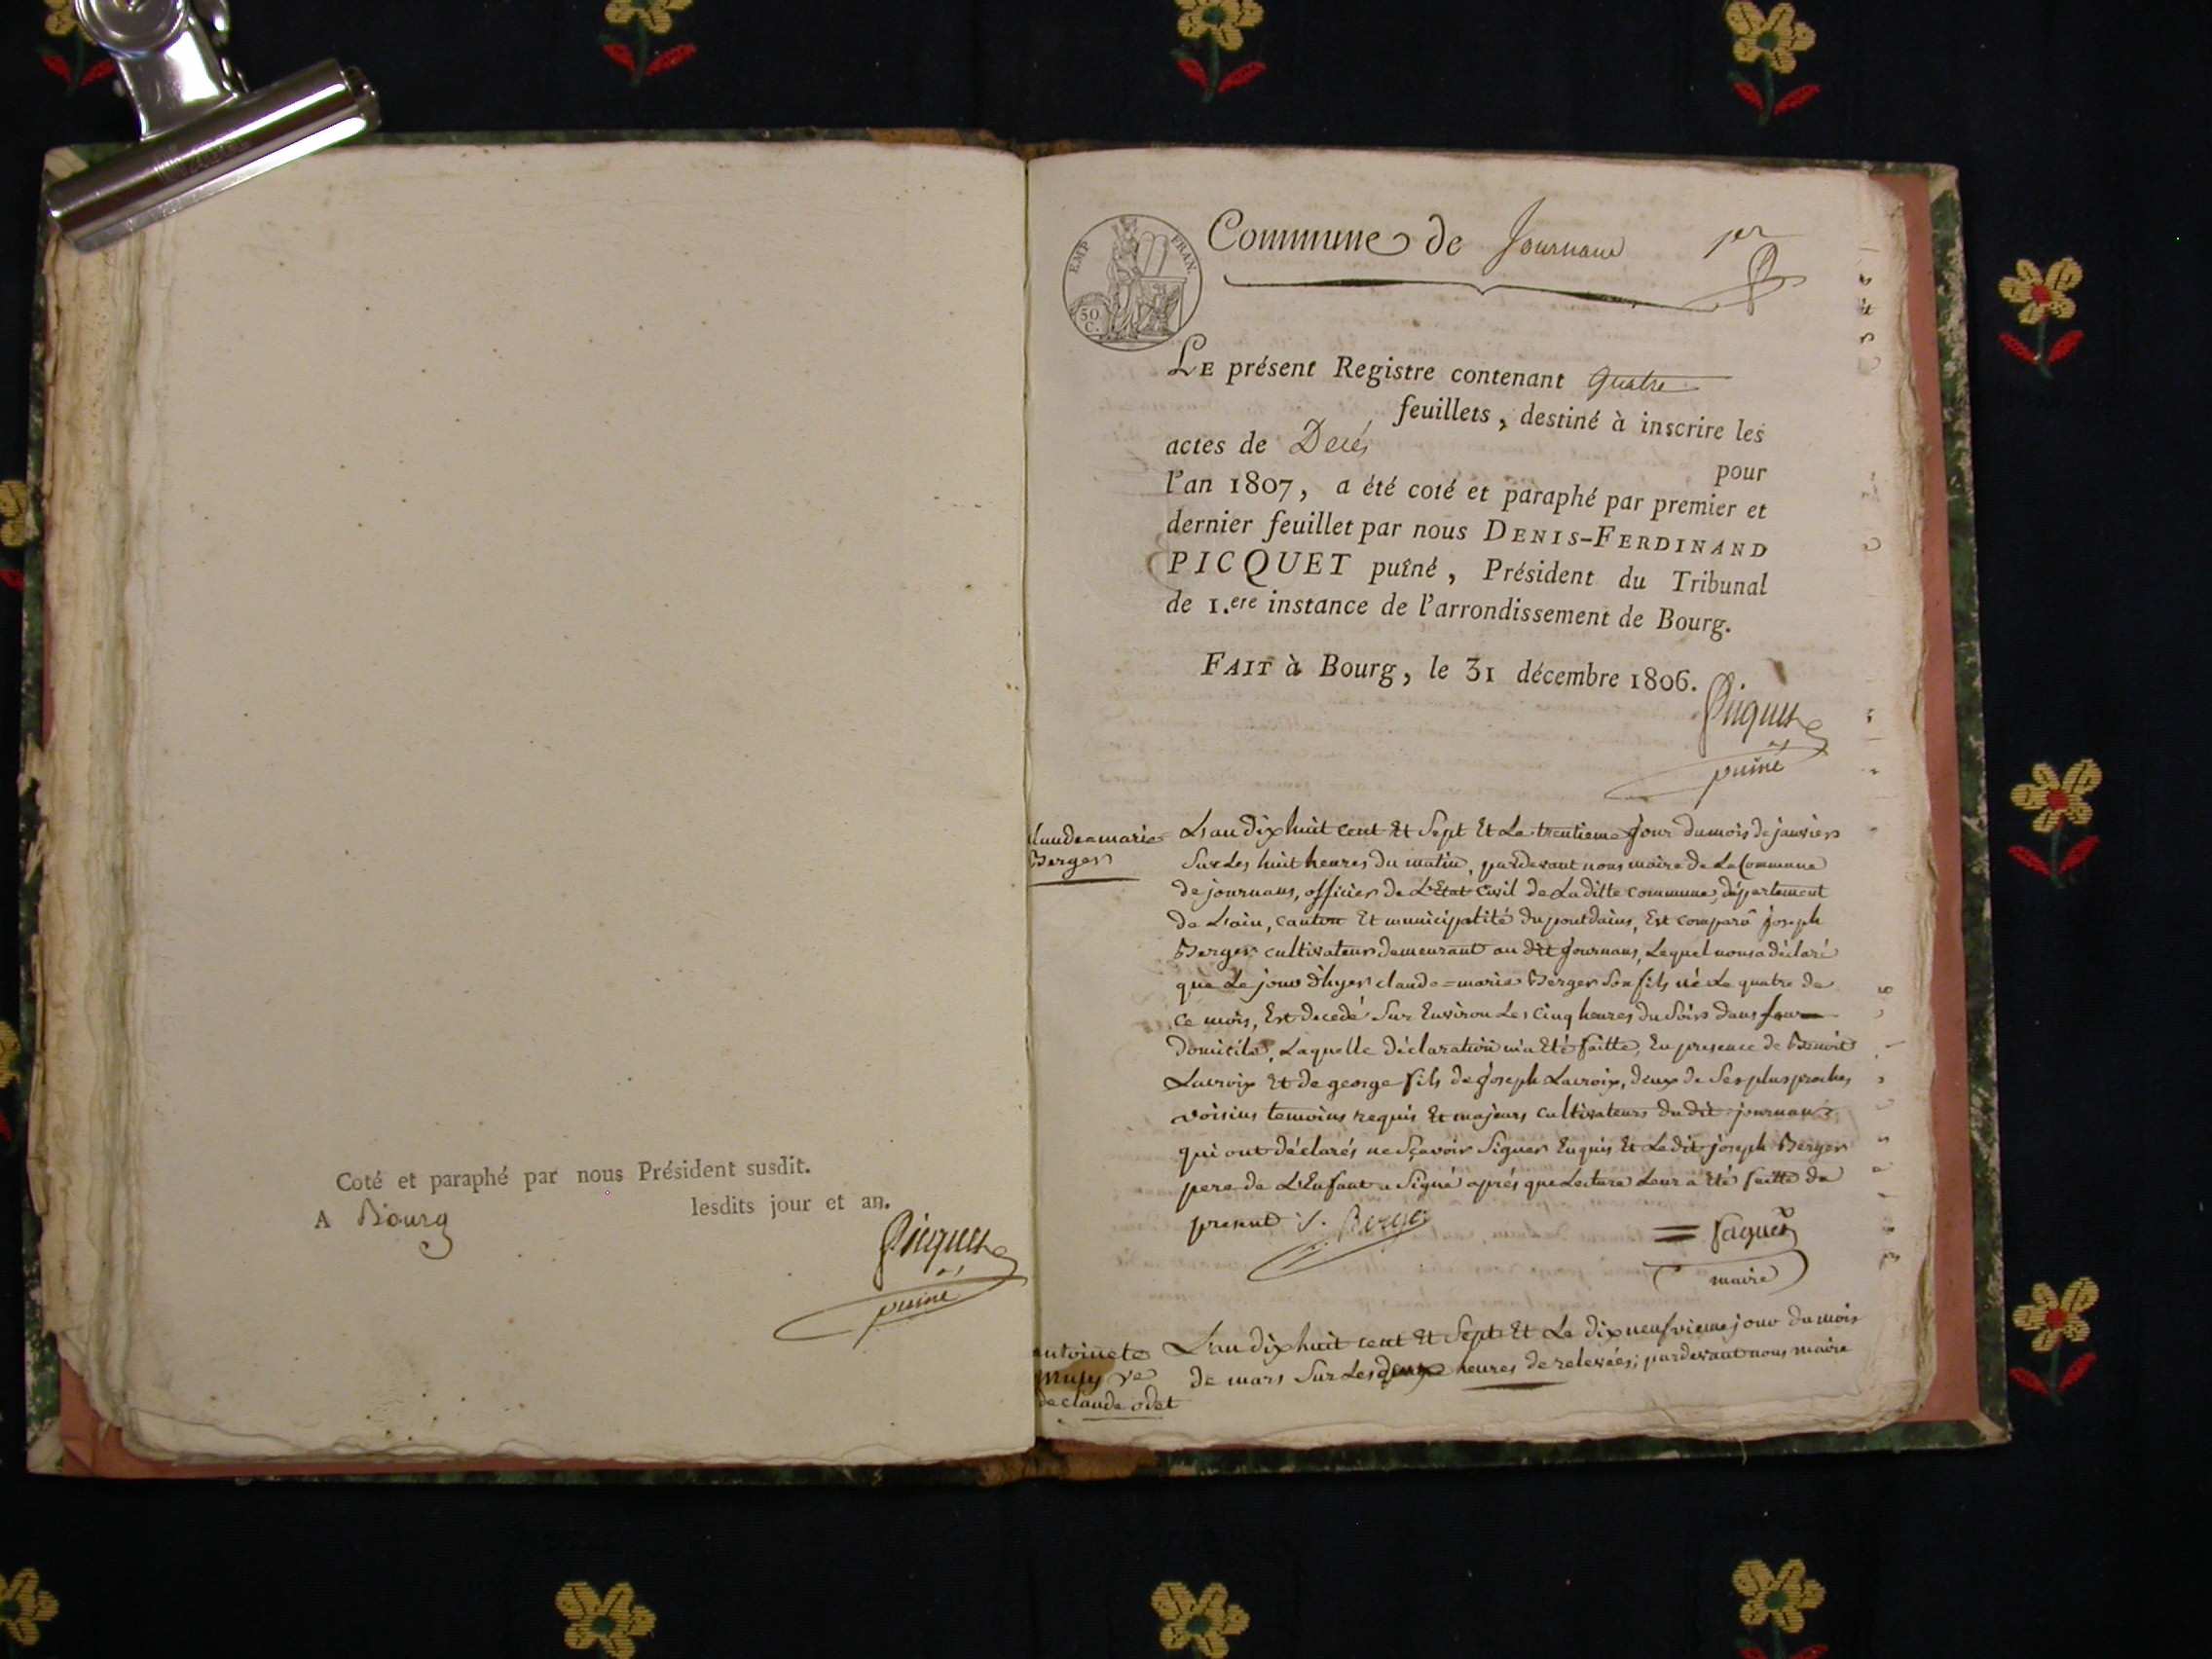 Coté et paraphé par nous Président susdit.
A Bourg lesdits jour et an.
Picquet
puiné
EMP. FRAN.
50
C.
Commune de Journans 1er
LE présent Registre contenant quatre
feuillets, destiné à inscrire les
actes de Decés
pour
l'an 1807, a été coté et paraphé par premier et
dernier feuillet par nous DENIS-FERDINAND
PICQUET puîné, Président du Tribunal
de 1.ere instance de l'arrondissement de Bourg.
FAIT à Bourg, le 31 décembre 1806.
Picquet
puiné
claude=marie
Berger
L'an dix huit cent Et Sept Et Le trentieme Jour du mois de janvier
Sur Les huit heures du matin, pardevant nous maire de La Commune
de journans, officier de L'Etat Civil de La ditte commune, département
de L'ain, canton Et municipalité du pontdains, Est comparu joseph
Berger cultivateur demeurant au dit Journans, Lequel nous a déclaré
que Le jour d'hyer claude=marie Berger Son fils né Le quatre de
ce mois, Est decedé Sur Environ Les Cinq heures du Soir dans
domicile, Laquelle déclaration m'a Eté faitte, En presence de Benoit
Lacroix Et de george fils de Joseph Lacroix, deux de Ses plus proches
voisins temoins requis Et majeurs cultivateurs du dit journans
qui ont déclarés ne Sçavoir Signer Enquis Et Le dit joseph Berger
pere de L'Enfant a Signé aprés que Lecture Leur a Eté faitte du
present J. Berger
= Paquet
maire
antoinete
ve
de claude odet
L'an dix huit cent Et Sept Et Le dix neufvieme jour du mois
de mars Sur Les deux heures de relevées; pardevant nous maire